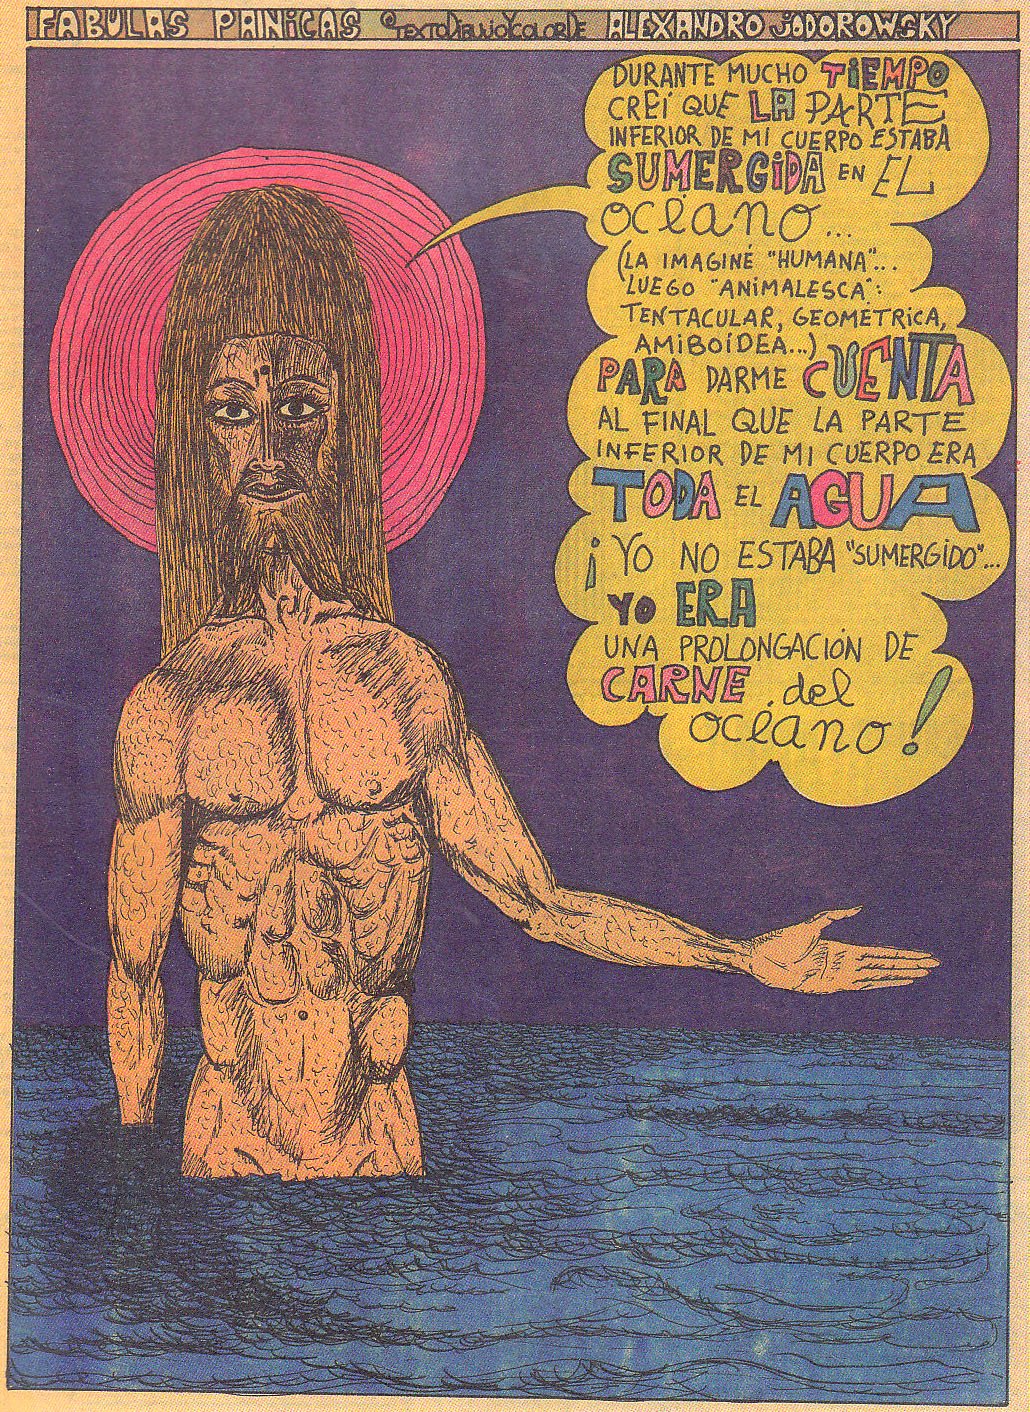 FABULAS PANICAS TEXTO DIBUJO Y COLOR DE ALEXANDRO JODOROWSKY
DURANTE MUCHO TIEMPO
CREÍ QUE LA PARTE
INFERIOR DE MI CUERPO ESTABA
SUMERGIDA EN EL
océano...
(LA IMAGINÉ "HUMANA"...
LUEGO "ANIMALESCA":
TENTACULAR, GEOMÉTRICA,
AMIBOIDEA...)
PARA DARME CUENTA
AL FINAL QUE LA PARTE
INFERIOR DE MI CUERPO ERA
TODA EL AGUA
¡YO NO ESTABA "SUMERGIDO"...
YO ERA
UNA PROLONGACIÓN DE
CARNE del
océano!